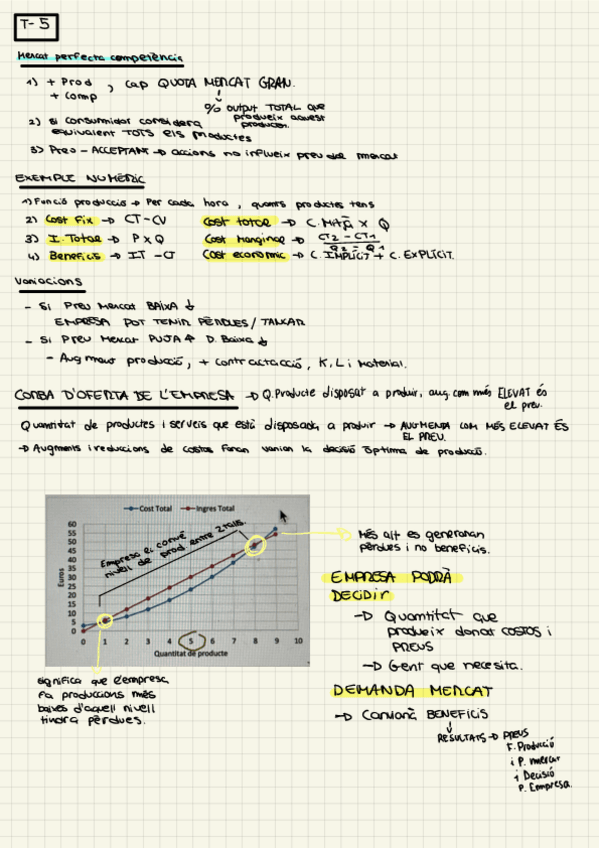 T-5
Mercat perfecta competència
1) + Prod , cap QUOTA MERCAT GRAN.
+ Comp
% output TOTAL que
produeix aquest
productor.
2) si consumidor considera
equivalent TOTS els productes
3) Preu - ACCEPTANT → accions no influeix preu del mercat
EXEMPLE NUMÈRIC
1) Funció producció → Per cada hora , quants productes tens
2) Cost Fix → CT-CV Cost total → C. Mitjà x Q
3) I. Total → P x Q Cost Marginal → CT2 - CT1
Q2 - Q1
4) Benefics → IT - CT Cost econòmic → C. IMPLÍCIT + C. EXPLÍCIT.
Variacions
- Si Preu Mercat BAIXA ↓
EMPRESA POT TENIR PÈRDUES / TANCAR
- Si Preu Mercat PUJA ↑ D. Baixa ↓
- Augment producció, + contractacció, K, L i Material.
CORBA D'OFERTA DE L'EMPRESA → Q. Producte disposat a produir, aug. com més ELEVAT és
el preu.
Quantitat de productes i serveis que està disposada a produir → AUGMENTA COM MÉS ELEVAT ÉS
EL PREU.
→ Augments i reduccions de costos faran variar la decisió òptima de producció.
Cost Total Ingres Total
60
55
50
45
40
35
30
25
20
15
10
5
0
Euros
0 1 2 3 4 5 6 7 8 9 10
Quantitat de producte
Empresa li convé
nivell de prod. entre 2 talls.
Més alt es generaran
pèrdues i no beneficis.
significa que l'empresa
fa produccions més
baixes d'aquell nivell
tindrà pèrdues.
EMPRESA PODRÀ
DECIDIR
→ Quantitat que
produeix donat COSTOS i
PREUS
→ Gent que necesita.
DEMANDA MERCAT
→ Canviarà BENEFICIS
RESULTATS → PREUS
F. Producció
i P. mercat
i Decisió
P. Empresa.